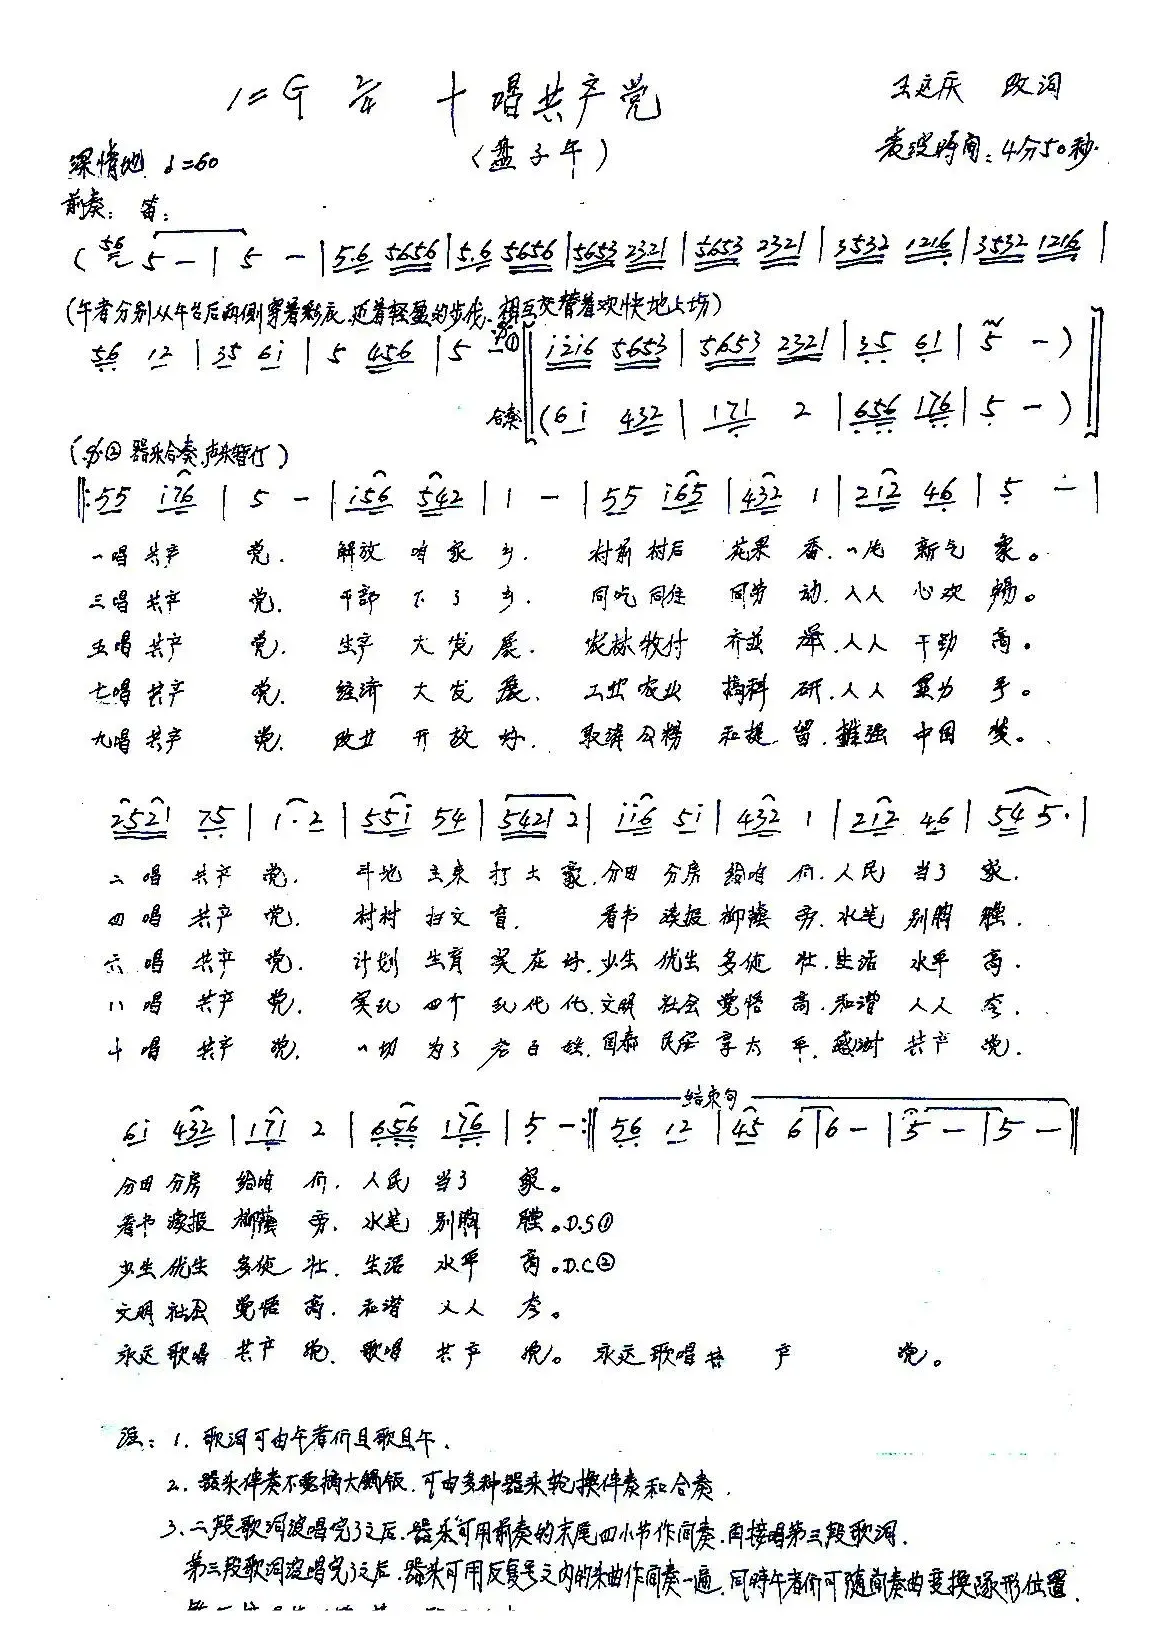 1=G 2/4 十唱共产党 王远庆 改词
(盘子午)
深情地 ♩=60 表演时间:4分50秒.
前奏: 笛:
(56 5 — | 5 — | 5.6 5656 | 5.6 5656 | 5653 2321 | 5653 2321 | 3532 1216 | 3532 1216 |
(午者分别从午台后两侧穿着彩衣.迈着轻盈的步伐.相互交替着欢快地上场)
56 12 | 35 6i | 5 456 | 5 — ① i2i6 5653 | 5653 2321 | 35 61 | 5 — )
合奏 (6i 432 | 171 2 | 656 176 | 5 — )
(② 器乐合奏,声乐暂停)
‖: 55 i76 | 5 — | i56 542 | 1 — | 55 i65 | 432 1 | 212 46 | 5 — |
一唱共产 党. 解放 咱 家 乡. 村前 村后 花果 香.一片 新气 象。
三唱共产 党. 干部 下 了 乡. 同吃 同住 同劳 动.人人 心欢 畅。
五唱共产 党. 生产 大 发 展. 农林牧付 齐并 举.人人 干劲 高。
七唱共产 党. 经济 大 发 展. 工业农业 搞科 研.人人 显力 手。
九唱共产 党. 改廿 开 放 好. 取消公粮 和提 留.雄强 中国 梦。
2521 75 | 1. 2 | 55i 54 | 5421 2 | ii6 5i | 432 1 | 212 46 | 54 5. |
二唱 共产 党. 斗地 主来 打土豪.分田 分房 给咱 们.人民 当了 家.
四唱 共产 党. 村村 扫文 盲. 看书 读报 柳荫 旁.水笔 别胸 膛.
六唱 共产 党. 计划 生育 实在好.少生 优生 多健 壮.生活 水平 高.
八唱 共产 党. 实现 四个 现代化.文明 社会 觉悟 高.和谐 人人 夸.
十唱 共产 党. 一切 为了 老百姓.国泰 民安 享太 平.感谢 共产 党.
结束句
6i 432 | 171 2 | 656 176 | 5 — :‖ 56 12 | 45 6 | 6 — | 5 — | 5 — ‖
分田 分房 给咱 们. 人民 当了 家。
看书 读报 柳荫 旁. 水笔 别胸 膛。D.S①
少生 优生 多健 壮. 生活 水平 高。D.C②
文明 社会 觉悟 高. 和谐 人人 夸。
永远歌唱 共产 党. 歌唱 共产 党。 永远歌唱共 产 党。
注: 1. 歌词可由午者们且歌且午.
2. 器乐伴奏不要搞大锅饭.可由多种器乐轮换伴奏和合奏.
3. 二段歌词演唱完了之后.器乐可用前奏的末尾四小节作间奏.再接唱第三段歌词.
第三段歌词演唱完了之后.器乐可用反复号之内的乐曲作间奏一遍.同时午者们可随间奏曲变换队形位置.